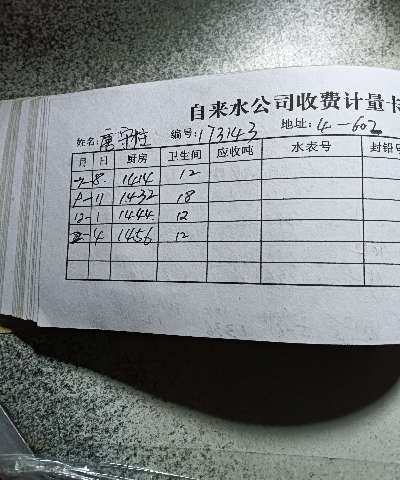 自来水公司收费计量卡
姓名: 唐守柱 编号: 173143 地址: 4-602
月 日 厨房 卫生间 应收吨 水表号 封铅号
8 1414 12
11 1432 18
12-1 1444 12
4 1456 12